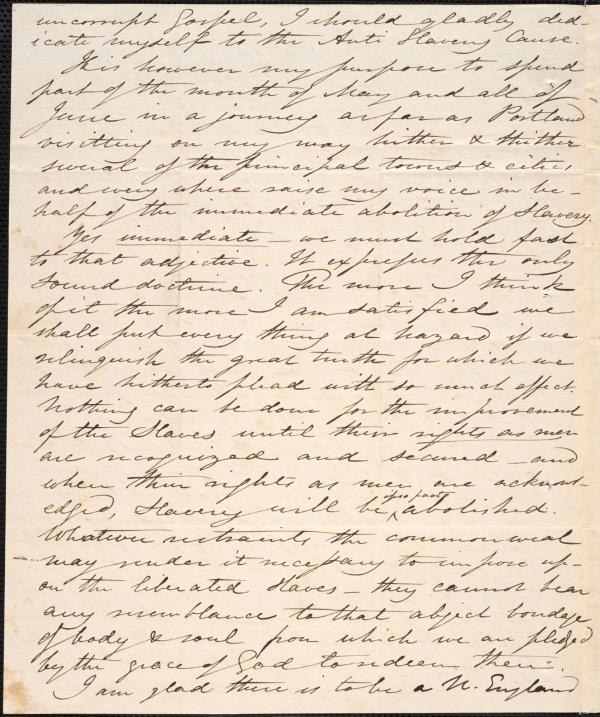 uncorrupt Gospel, I should gladly ded-
icate myself to the Anti Slavery Cause.
It is however my purpose to spend
part of the month of May and all of
June in a journey as far as Portland
visitting on my way hither & thither
several of the principal towns & cities
and every where raise my voice in be-
half of the immediate abolition of Slavery.
Yes immediate – we must hold fast
to that adjective. It expresses the only
sound doctrine. The more I think
of it the more I am satisfied we
shall put every thing at hazard if we
relinquish the great truth for which we
have hitherto plead with so much effect.
Nothing can be done for the improvement
of the Slaves until their rights as men
are recognized and secured – and
when their rights as men are acknowl-
edged, Slavery will be ipso facto abolished.
Whatever restraints the commonweal
may render it necessary to impose up-
on the liberated Slaves – they cannot bear
any resemblance to that abject bondage
of body & soul from which we are pledged
by the grace of God to redeem them.
I am glad there is to be a N. England